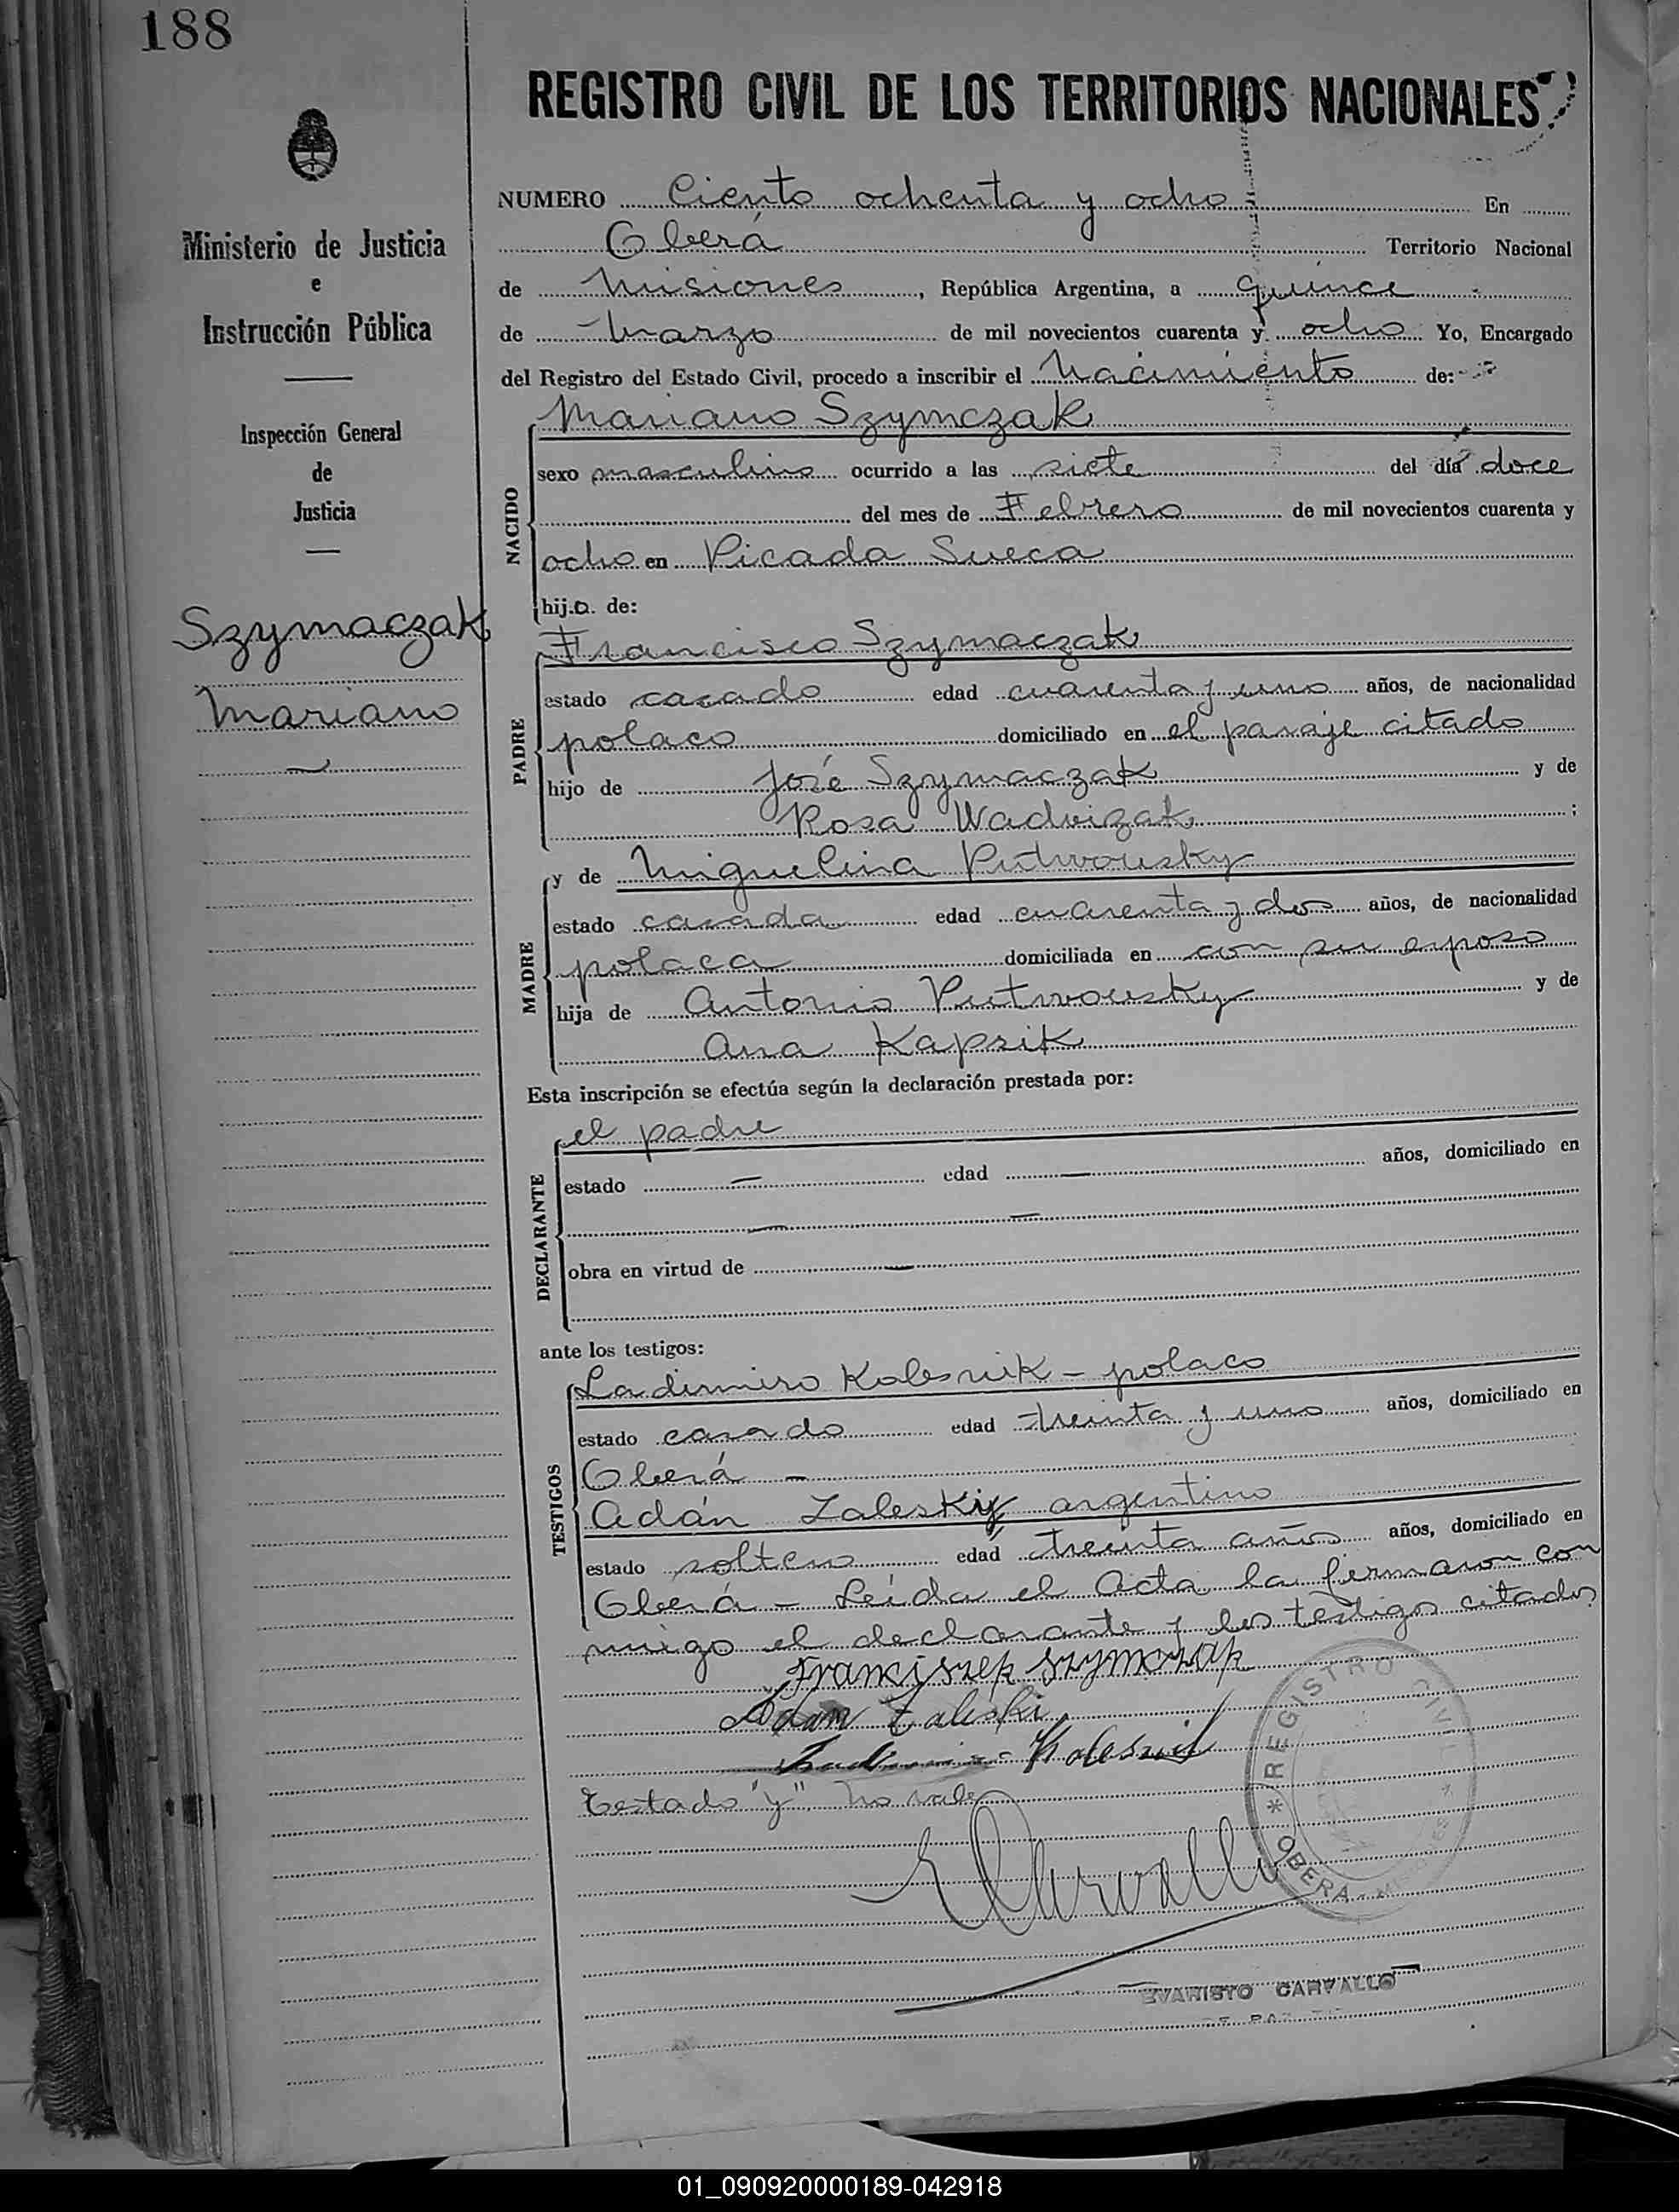 188
REGISTRO CIVIL DE LOS TERRITORIOS NACIONALES
Ministerio de Justicia
e
Instrucción Pública
Inspección General
de
Justicia
Szymaczak
Mariano
NUMERO Ciento ochenta y ocho En
Oberá Territorio Nacional
de Misiones, República Argentina, a quince
de Marzo de mil novecientos cuarenta y ocho Yo, Encargado
del Registro del Estado Civil, procedo a inscribir el Nacimiento de:
NACIDO
Mariano Szymczak
sexo masculino ocurrido a las siete del día doce
del mes de Febrero de mil novecientos cuarenta y
ocho en Picada Sueca
hijo de:
PADRE
Francisco Szymaczak
estado casado edad cuarenta y uno años, de nacionalidad
polaco domiciliado en el paraje citado
hijo de José Szymaczak y de
Rosa Wadvizak;
MADRE
y de Miguelina Putwousky
estado casada edad cuarenta y dos años, de nacionalidad
polaca domiciliada en con su esposo
hija de Antonio Putwousky y de
Ana Kapsik
Esta inscripción se efectúa según la declaración prestada por:
DECLARANTE
el padre
estado — edad — años, domiciliado en
— —
obra en virtud de —
ante los testigos:
TESTIGOS
Ladimiro Kolesnik - polaco
estado casado edad treinta y uno años, domiciliado en
Oberá -
Adán Zalesky argentino
estado soltero edad treinta años años, domiciliado en
Oberá - Leída el Acta la firmaron con
migo el declarante y los testigos citados
Franciszek Szymczak
Adam Zaleski
Kolesnik
Testado "y" no vale
ECarvallo
REGISTRO CIVIL
* OBERA - MISIONES *
EVARISTO CARVALLO
01_090920000189-042918